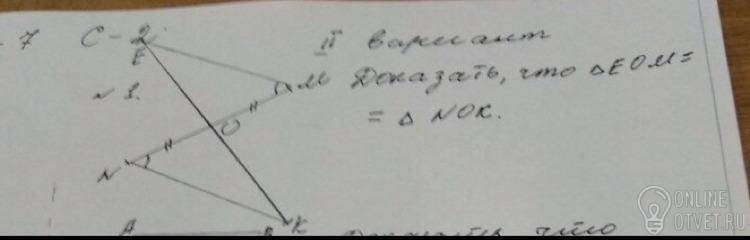 - 7 С - 2 II вариант
E
M Доказать, что △EOM =
№ 1.
O = △ NOK.
N
K
A
ONLINE
OTVET.RU